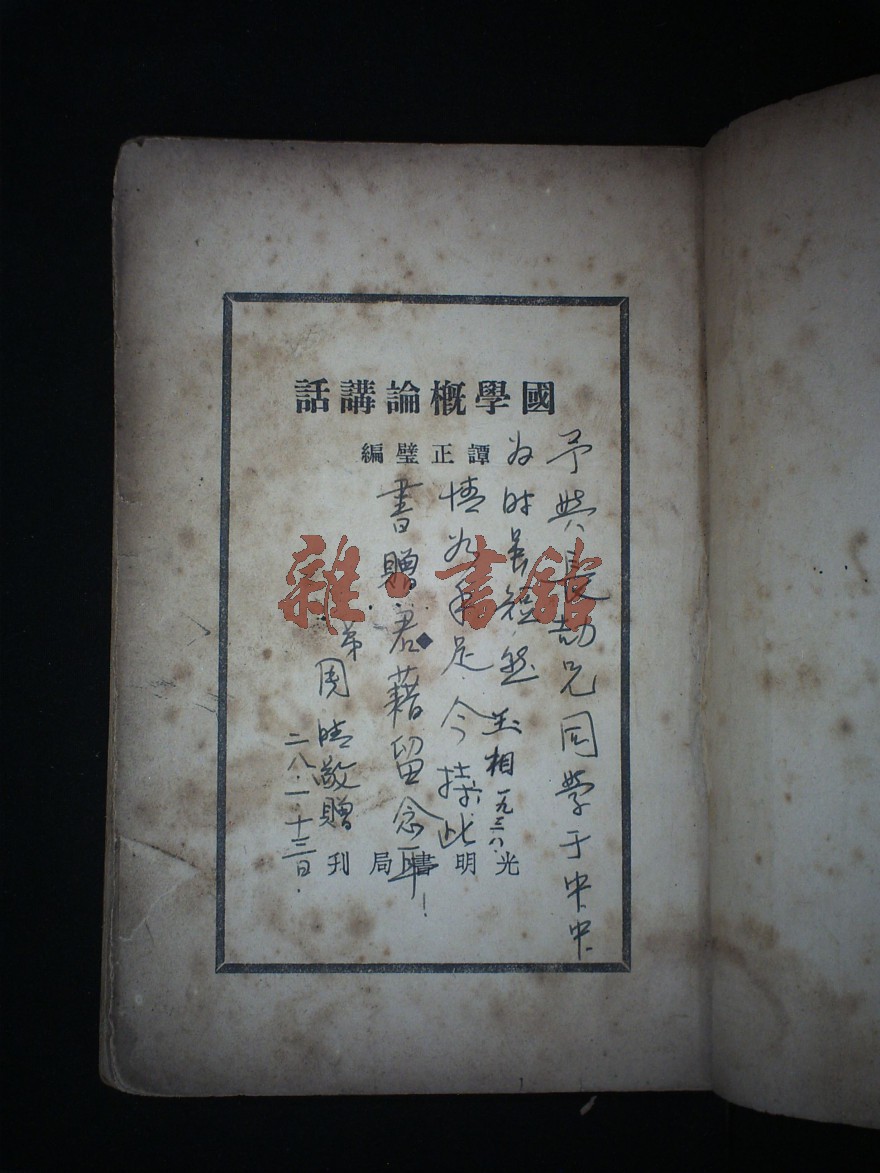 國學概論講話
譚正璧編
光明書局刊
予與長劼兄同學于中中
為時雖短然互相
情如手足今持此
書贈君藉留念耳！
弟周晴敬贈
一九三八
二八．一．十三日．
雜·書館